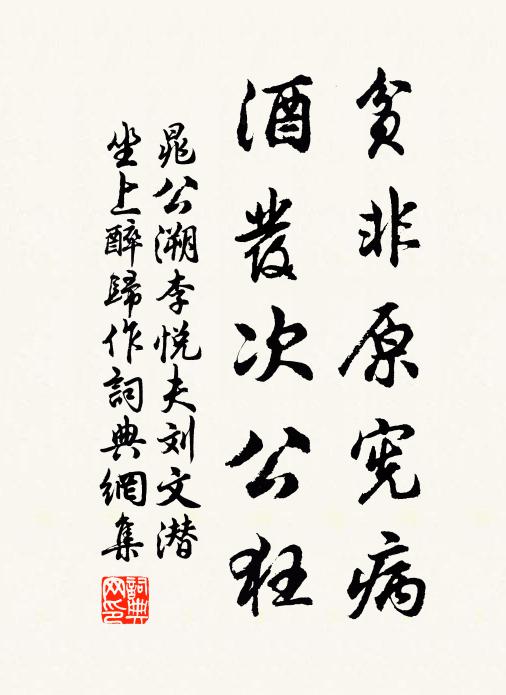 貧非原憲病
酒發次公狂
晁公溯李悅夫刘文潜
坐上醉歸作詞典網集
詞典网印